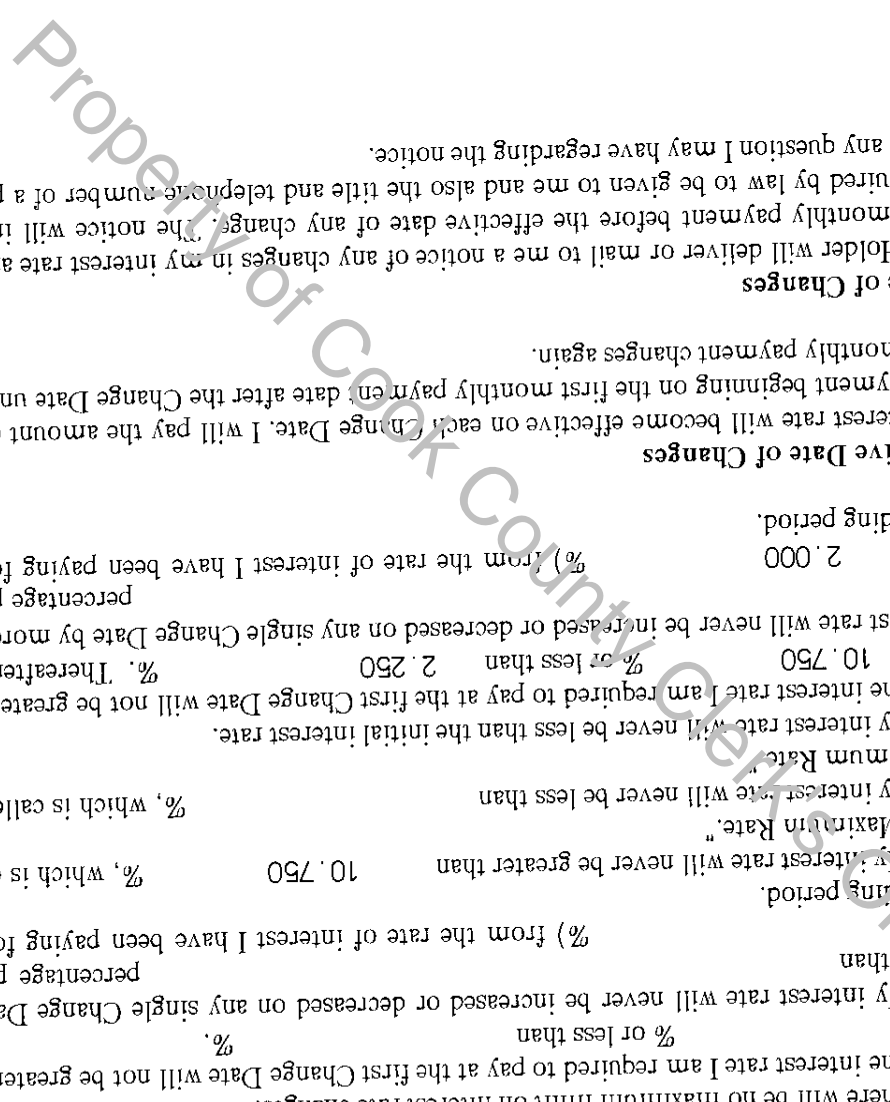 here will be no maximum limit on interest rate changes.
he interest rate I am required to pay at the first Change Date will not be greater
% or less than %.
y interest rate will never be increased or decreased on any single Change Da
than percentage p
%) from the rate of interest I have been paying fo
ding period.
y interest rate will never be greater than 10.750 %, which is
Maximum Rate."
y interest rate will never be less than %, which is calle
mum Rate."
y interest rate will never be less than the initial interest rate.
he interest rate I am required to pay at the first Change Date will not be greate
10.750 % or less than 2.250 %. Thereafter
st rate will never be increased or decreased on any single Change Date by more
percentage p
2.000 %) from the rate of interest I have been paying f
ding period.
ive Date of Changes
terest rate will become effective on each Change Date. I will pay the amount
yment beginning on the first monthly payment date after the Change Date un
monthly payment changes again.
e of Changes
Holder will deliver or mail to me a notice of any changes in my interest rate a
monthly payment before the effective date of any change. The notice will i
uired by law to be given to me and also the title and telephone number of a p
any question I may have regarding the notice.
Property of Cook County Clerk's O